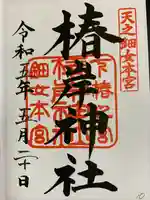 天之細女本宮
椿岸神社
令和五年五月二十日
細女本宮